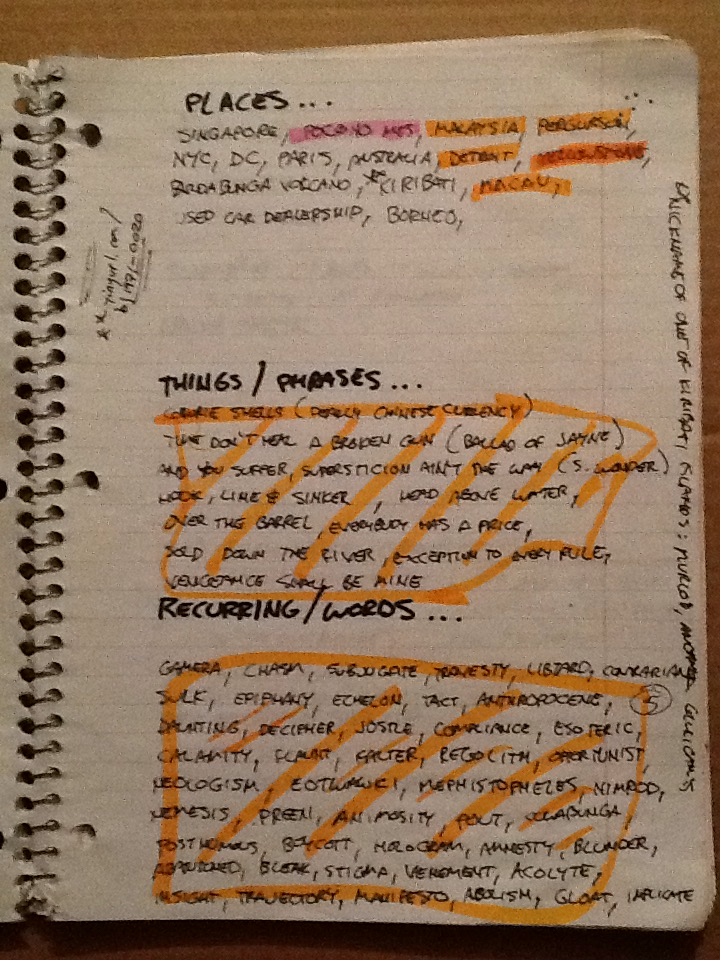 PLACES...
SINGAPORE, POCONO MTS, MALAYSIA, FERGURSON,
NYC, DC, PARIS, AUSTRALIA, DETROIT,
BARDABUNGA VOLCANO, ** KIRIBATI, MACAU,
USED CAR DEALERSHIP, BORNEO,
THINGS/PHRASES...
COWRIE SHELLS (PEARLY CHINESE CURRENCY)
TIME DON'T HEAL A BROKEN GUN (BALLAD OF JAYNE)
AND YOU SUFFER, SUPERSTICION AIN'T THE WAY (S. WONDER)
HOOK, LINE & SINKER, HEAD ABOVE WATER,
OVER THE BARREL, EVERYBODY HAS A PRICE,
SOLD DOWN THE RIVER, EXCEPTION TO EVERY RULE,
VENGEANCE SHALL BE MINE
RECURRING/WORDS...
CAMERA, CHASM, SUBJUGATE, TRAVESTY, LIBTARD, CONTRARIAN
SULK, EPIPHANY, ECHELON, TACT, ANTHROPOCENE, 5
DAUNTING, DECIPHER, JOSTLE, COMPLIANCE, ESOTERIC,
CALAMITY, FLAUNT, FALTER, REGOLITH, OPORTUNIST,
NEOLOGISM, MEPHISTOPHELES, NIMROD,
NEMESIS, PREEN, ANIMOSITY, POUT,
POSTHUMOUS, BOYCOTT, HOLOGRAM, AMNESTY, BLUNDER,
BLEAK, STIGMA, VEHEMENT, ACOLYTE,
INSIGHT, TRAJECTORY, MANIFESTO, ABOLISM, GLOAT, IMPLICATE
NICKNAME OF ONE OF KIRIBATI ISLANDS: